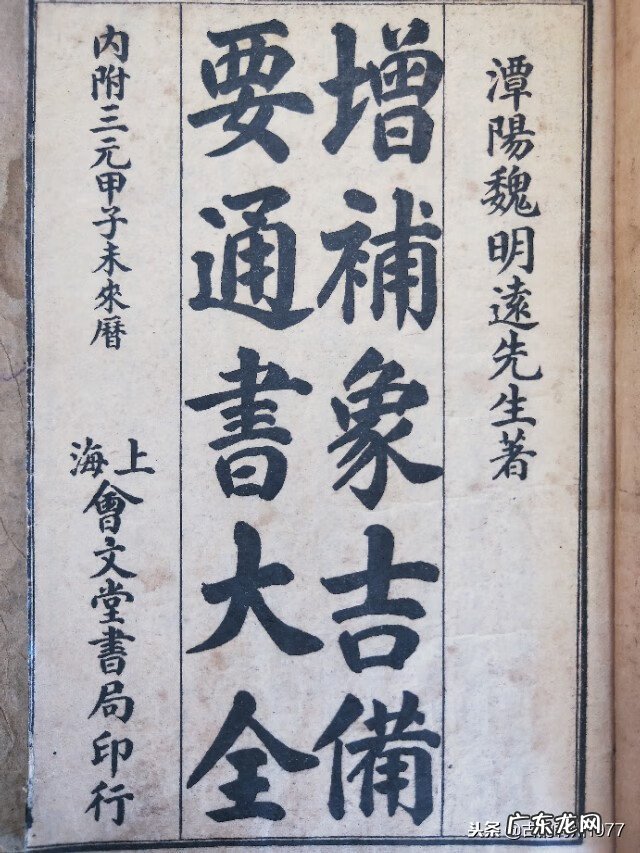 潭陽魏明遠先生著
增補象吉備
要通書大全
内附三元甲子未來曆
上海
會文堂書局印行
广东龙网